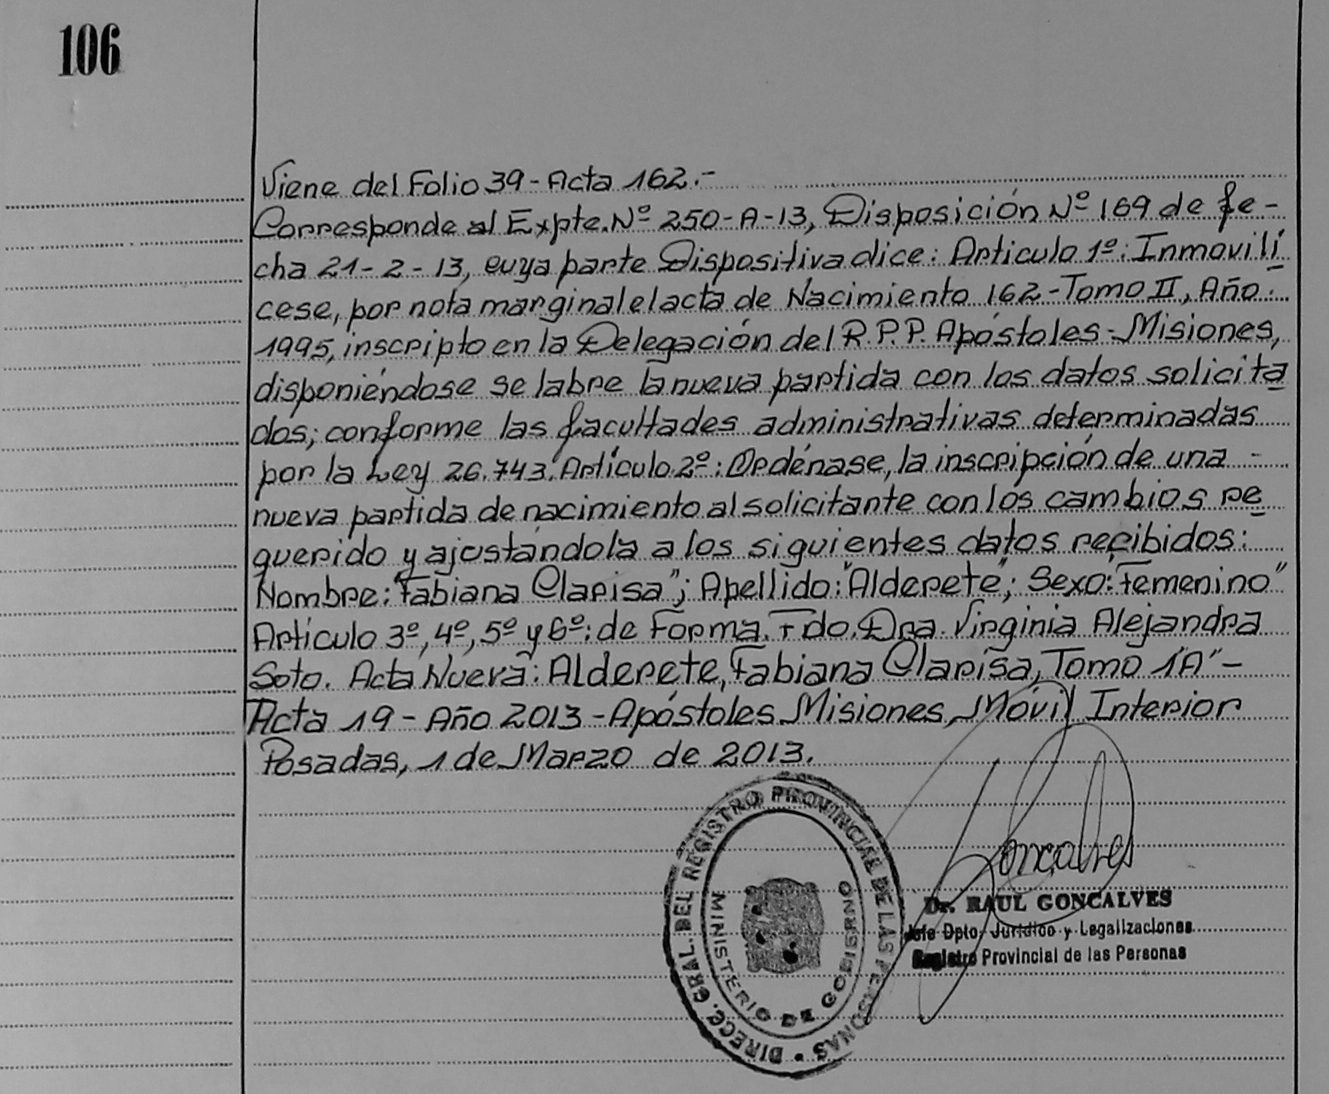 106
Viene del Folio 39 - Acta 162.-
Corresponde al Expte. Nº 250-A-13, Disposición Nº 169 de fe-
cha 21-2-13, cuya parte Dispositiva dice: Articulo 1º: Inmovilí
cese, por nota marginal el acta de Nacimiento 162 - Tomo II, Año:
1995, inscripto en la Delegación del R.P.P. Apóstoles - Misiones,
disponiéndose se labre la nueva partida con los datos solicita
dos; conforme las facultades administrativas determinadas
por la Ley 26.743. Artículo 2º: Ordénase, la inscripción de una -
nueva partida de nacimiento al solicitante con los cambios re
querido y ajustándola a los siguientes datos recibidos:
Nombre: "Fabiana Clarisa"; Apellido: "Alderete"; Sexo: "Femenino"
Artículo 3º, 4º, 5º y 6º: de Forma. Fdo. Dra. Virginia Alejandra
Soto. Acta Nueva: Alderete, Fabiana Clarisa, Tomo 1"A" -
Acta 19 - Año 2013 - Apóstoles Misiones, Móvil Interior
Posadas, 1 de Marzo de 2013.
DIRECC. GRAL. DEL REGISTRO PROVINCIAL DE LAS PERSONAS
MINISTERIO DE GOBIERNO
Goncalves
Dr. RAUL GONCALVES
Jefe Dpto. Jurídico y Legalizaciones
Registro Provincial de las Personas